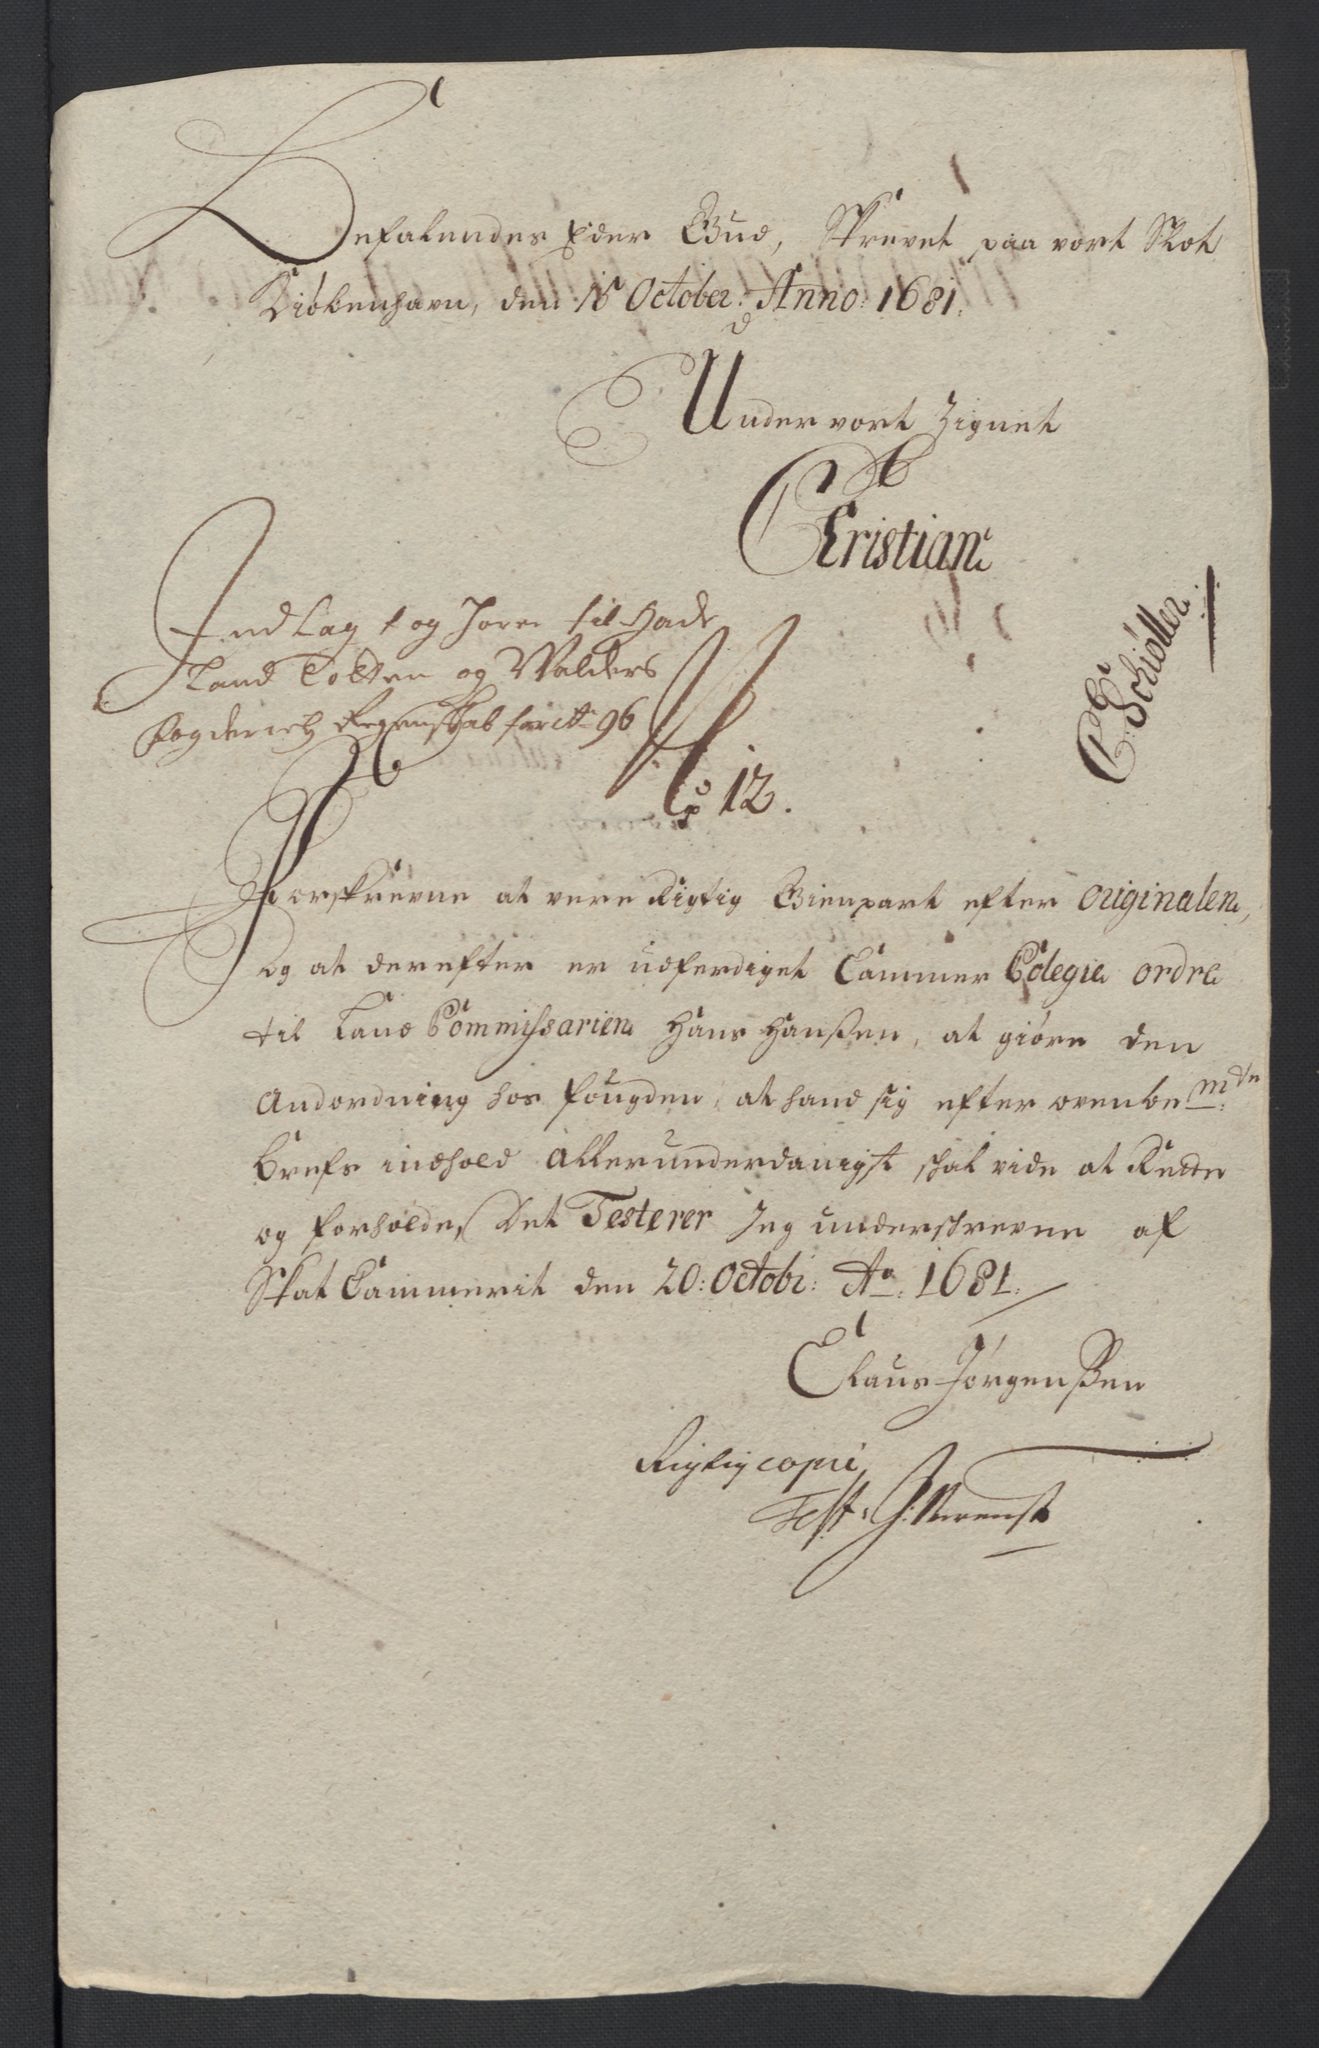 Befalendes Eder Gud, Skrevet paa vort Slot
Kiøbenhavn, den 15 October: Anno: 1681.
Under vort Zignet
Christian
C Schiøller
Indlagt og hører til Hade
Land Totten og Walders
Fogderies Regenskab for Ao 96
No 12.
Forskrevne at vere Rigtig Gienpart efter Originalen,
og at derefter er udferdiget Cammer Colegie ordre
til Land Commissarien Hans Hanßen, at giøre den
Andordning hos fougden, at hand sig efter ovenbemte
brefs indhold allerunderdanigst skal vide at Rette
og forholde, Det Testerer Jeg underskrevne af
Skat Cammerit den 20: Octobr: Ao: 1681.
Claus Jørgenßen
Rigtig copie
Test: